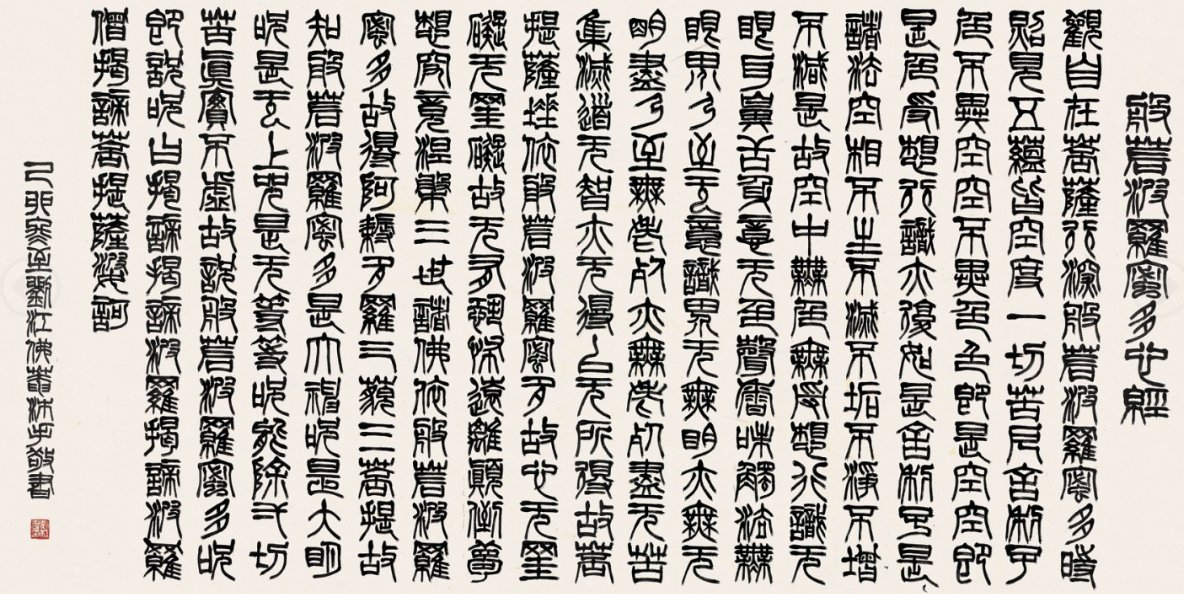 般若波羅蜜多心經
觀自在菩薩行深般若波羅蜜多時
照見五蘊皆空度一切苦厄舍利子
色不異空空不異色色即是空空即
是色受想行識亦復如是舍利子是
諸法空相不生不滅不垢不淨不增
不減是故空中無色無受想行識无
眼耳鼻舌身意无色聲香味觸法無
眼界乃至无意識界无無明亦無无
明盡乃至無老死亦無老死盡无苦
集滅道无智亦无得以无所得故菩
提薩埵依般若波羅蜜多故心无罣
礙无罣礙故无有恐怖遠離顛倒夢
想究竟涅槃三世諸佛依般若波羅
蜜多故得阿耨多羅三藐三菩提故
知般若波羅蜜多是大神咒是大明
咒是无上咒是无等等咒能除一切
苦真實不虛故說般若波羅蜜多咒
即說咒曰揭諦揭諦波羅揭諦波羅
僧揭諦菩提薩婆訶
己卯冬至劉江沐手敬書